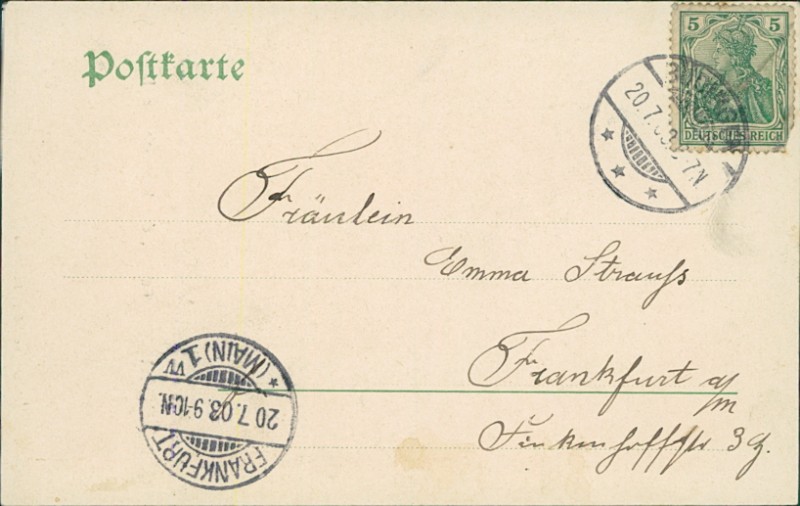 Postkarte
5 5
DEUTSCHES REICH
20.7.03. 7N
Fräulein
Emma Strauss
Frankfurt a/m
Finkenhoffstr 39.
FRANKFURT
20.7.03.9-10N.
* (MAIN) 1 W